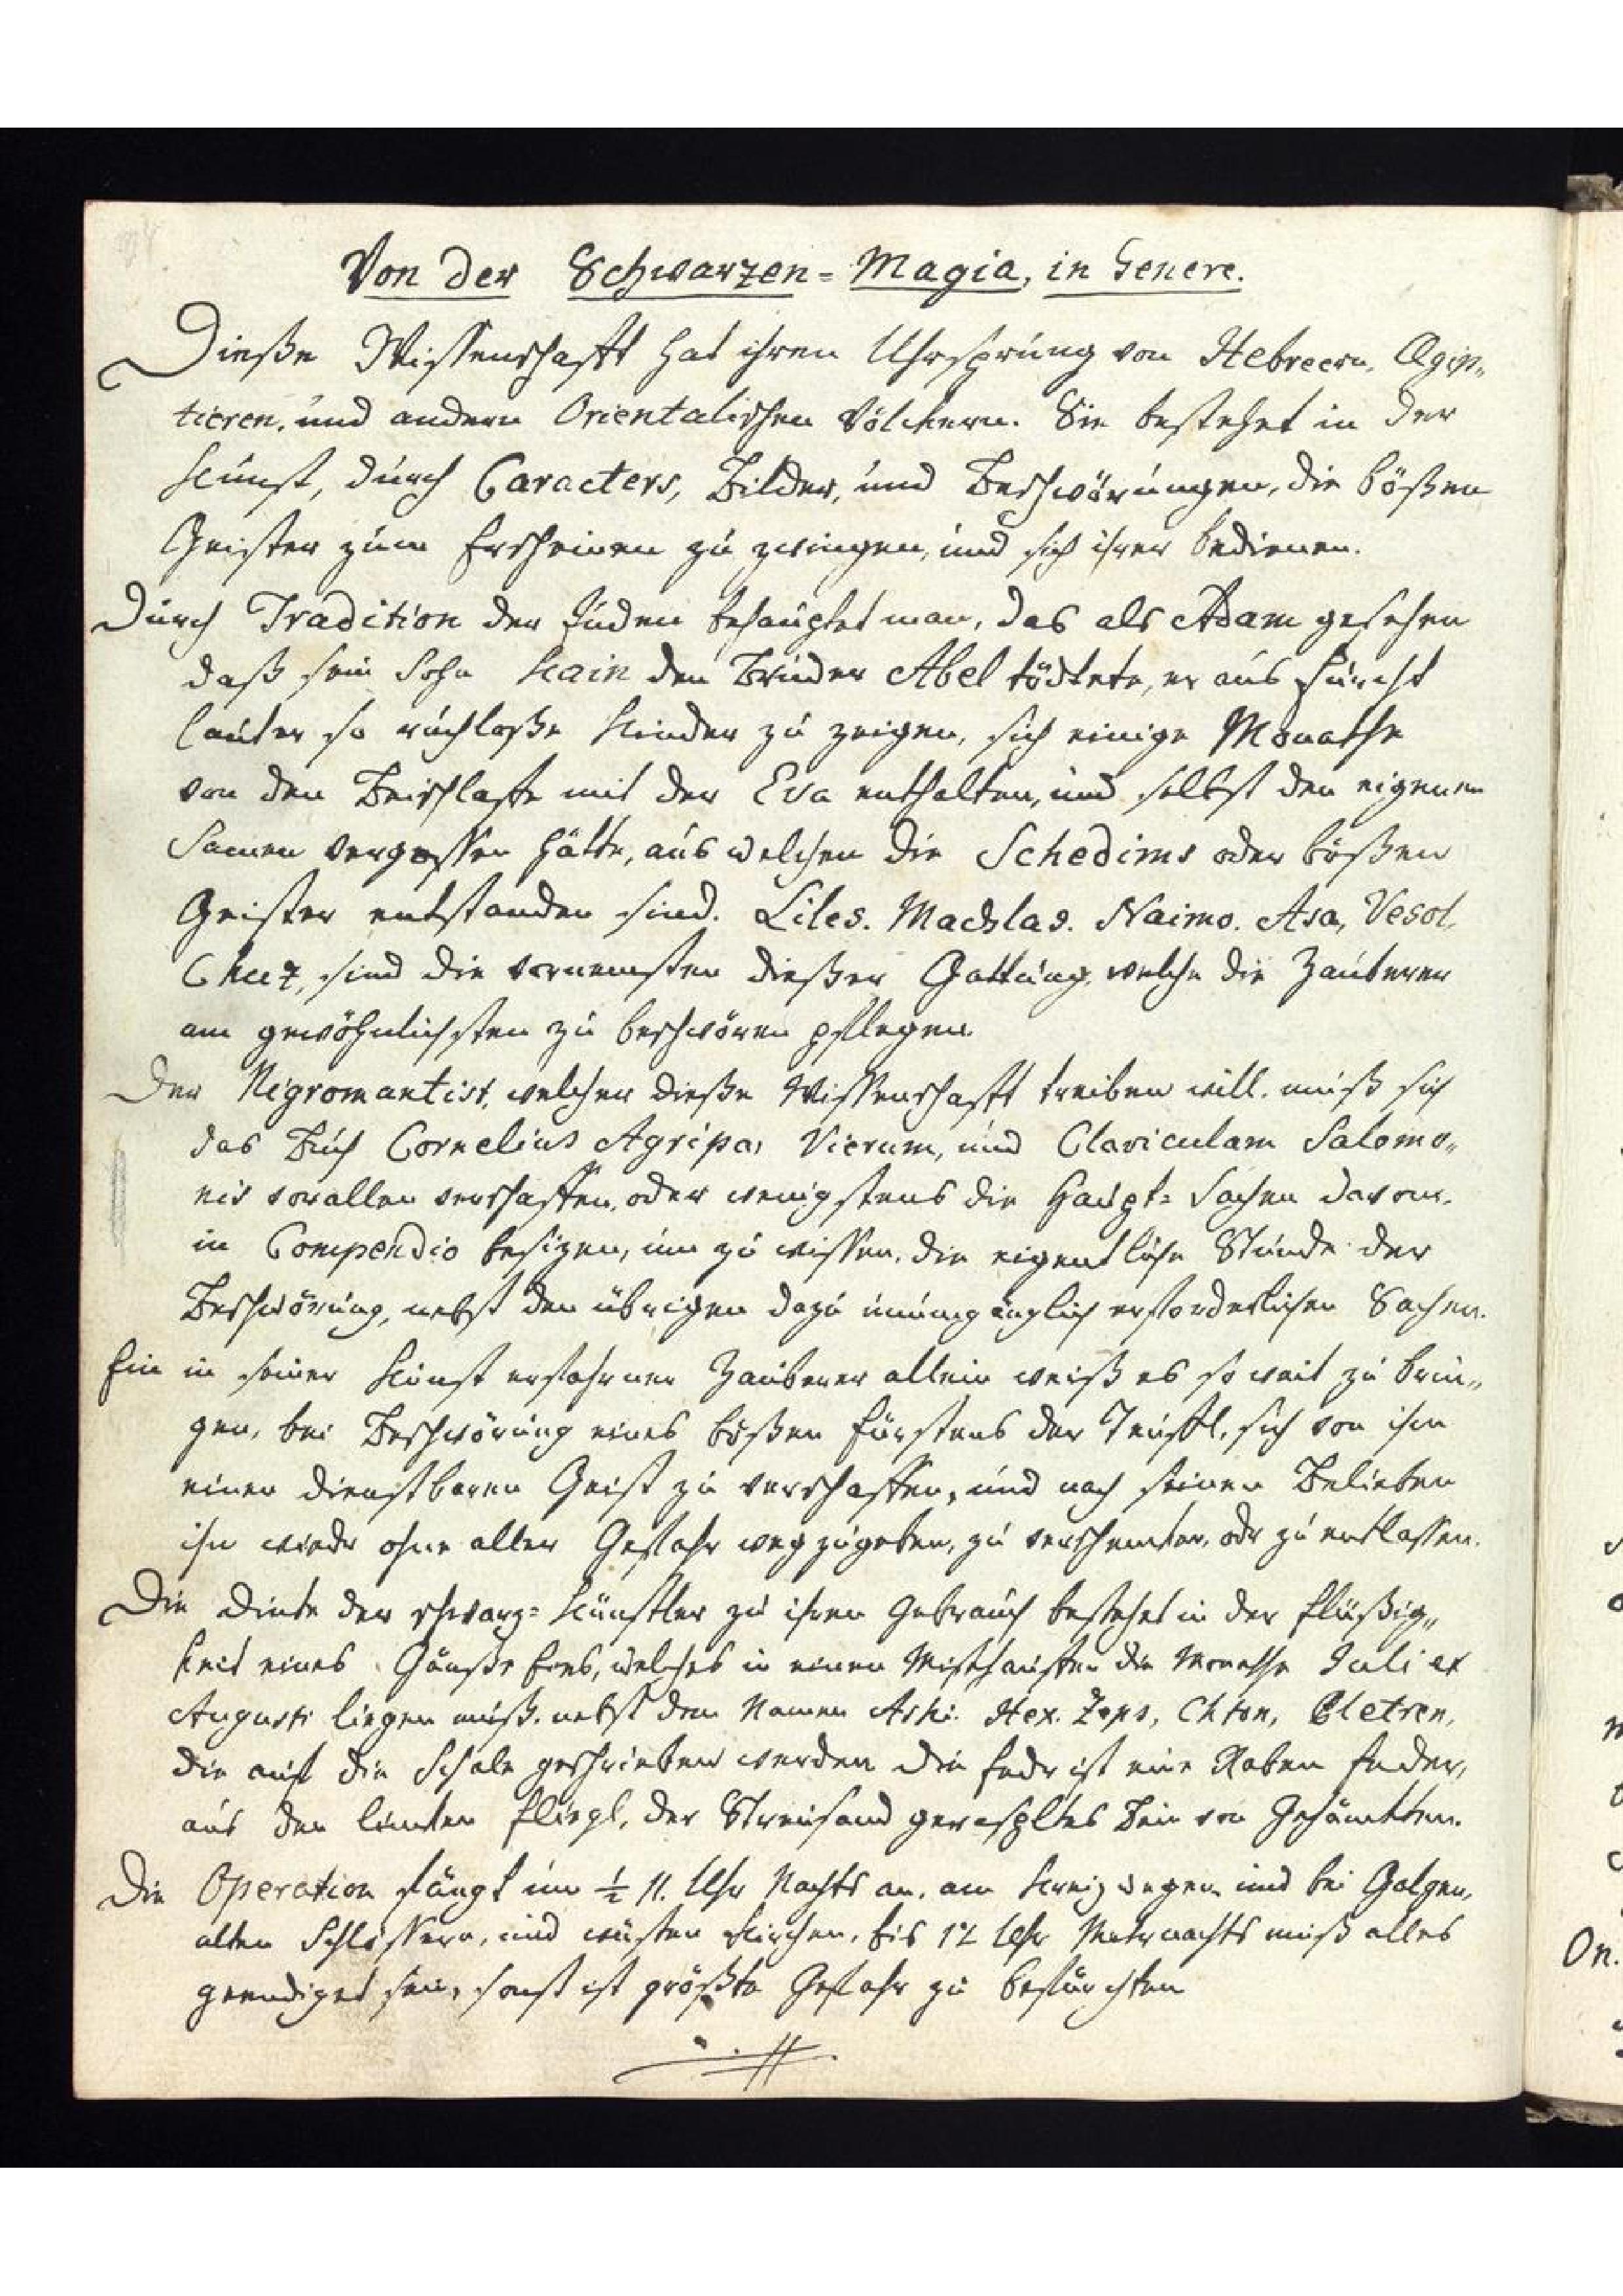 Von der Schwarzen=Magia, in Genere.
Dieße Wissenschafft hat ihren Uhrsprung von Hebreern, Ægip„
tieren, und andern Orientalischen Völckern. Sie bestehet in der
Kunst, durch Caracters, Bilder, und Beschwörungen, die bößen
Geister zum Erscheinen zu zwingen, und sich ihrer bedienen.
Durch Tradition der Juden behauptet man, das als Adam gesehen
daß sein Sohn Kain den Bruder Abel tödtete, er aus Furcht
lauter so ruchloße Kinder zu zeigen, sich einige Monathe
von den Beischlaffe mit der Eva enthalten, und selbst den eigenen
Samen vergossen hätte, aus welchen die Schedims oder bößen
Geister entstanden sind. Liles. Machlas. Naimo. Asa, Vesol,
sind die vornemsten dießer Gattung, welche die Zauberer
am gewöhnlichsten zu beschwören pflegen.
Der Nigromantist, welcher dieße Wissenschafft treiben will, muß sich
das Buch Cornelius Agripa, Vierum, und Claviculam Salomo„
nis vor allen verschaffen, oder wenigstens die Haupt=Sachen davon,
in Compendio besizen, um zu wissen, die eigentliche Stunde der
Beschwörung, nebst den übrigen dazu unumgänglich erforderlichen Sachen.
Ein in seiner Kunst erfahrner Zauberer allein weiß es so weit zu brin„
gen, bei Beschwörung eines bößen Fürstens der Teuffl, sich von ihm
einen dienstbaren Geist zu verschaffen, und nach seinen Belieben
ihn wiedr ohne aller Gefahr weg zugeben, zu verschenken, odr zu entlassen.
Die Dinte der schwarz=Künstler zu ihren Gebrauch bestehet in der Flüßig„
keit eines Gänße Eyes, welches in einen Misthauffen die Monathe Juli et
Augusti liegen muß, nebst den Namen Aski. Hex. Zeps, Chton,
die auf die Schale geschrieben werden. die Fedr ist eine Raben Feder,
aus den lincken Fliegl, der Streusand geraspltes Bein von Gehänckten.
Die Operation fängt um ½ 11. Uhr Nachts an, am Kreuz wegen, und bei Galgen,
alten Schlössern, und wüsten Kirchen, bis 12 Uhr Mitrnachts muß alles
geendiget sein, sonst ist größte Gefahr zu befürchten
On.